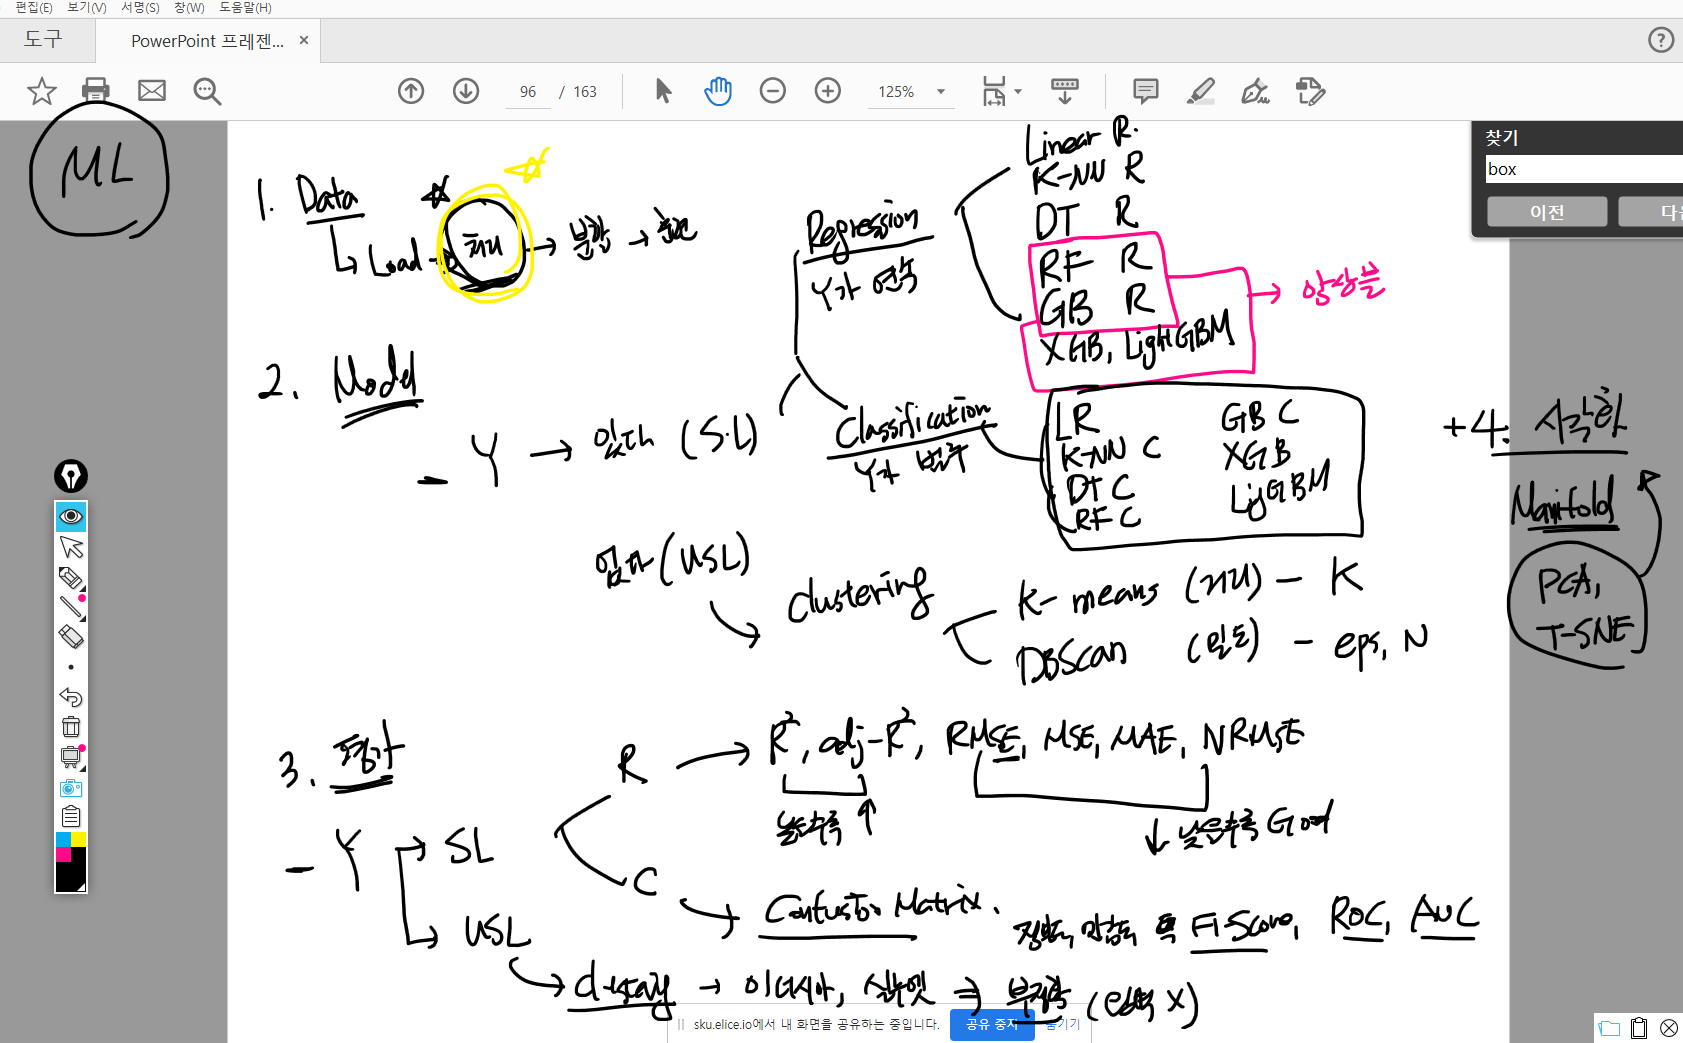 편집(E) 보기(V) 서명(S) 창(W) 도움말(H)
도구 PowerPoint 프레젠... ×
96 / 163 125%
찾기
box
이전
ML
1. Data
Load → 처리 → 분할 →
Regression
Y가 연속
Linear R.
K-NN R
DT R
RF R
GB R
XGB, LightGBM
→ 앙상블
2. Model
- Y → 있다 (S.L)
Classification
Y가 범주
LR
K-NN C
DT C
RF C
GB C
XGB
LigGBM
없다 (USL)
clustering
K-means (거리) - K
DBScan (밀도) - eps, N
+4. 시각화
Manifold
PCA,
T-SNE
3. 평가
- Y → SL
→ USL
R → R², adj-R², RMSE, MSE, MAE, NRMSE
높을수록 ↑
↓ 낮을수록 Good
C → Confusion Matrix.
정확도, 민감도, F1-Score, ROC, AUC
→ 이너시아, 실루엣 ⇒ 부정확 (X)
sku.elice.io에서 내 화면을 공유하는 중입니다. 공유 중지 숨기기